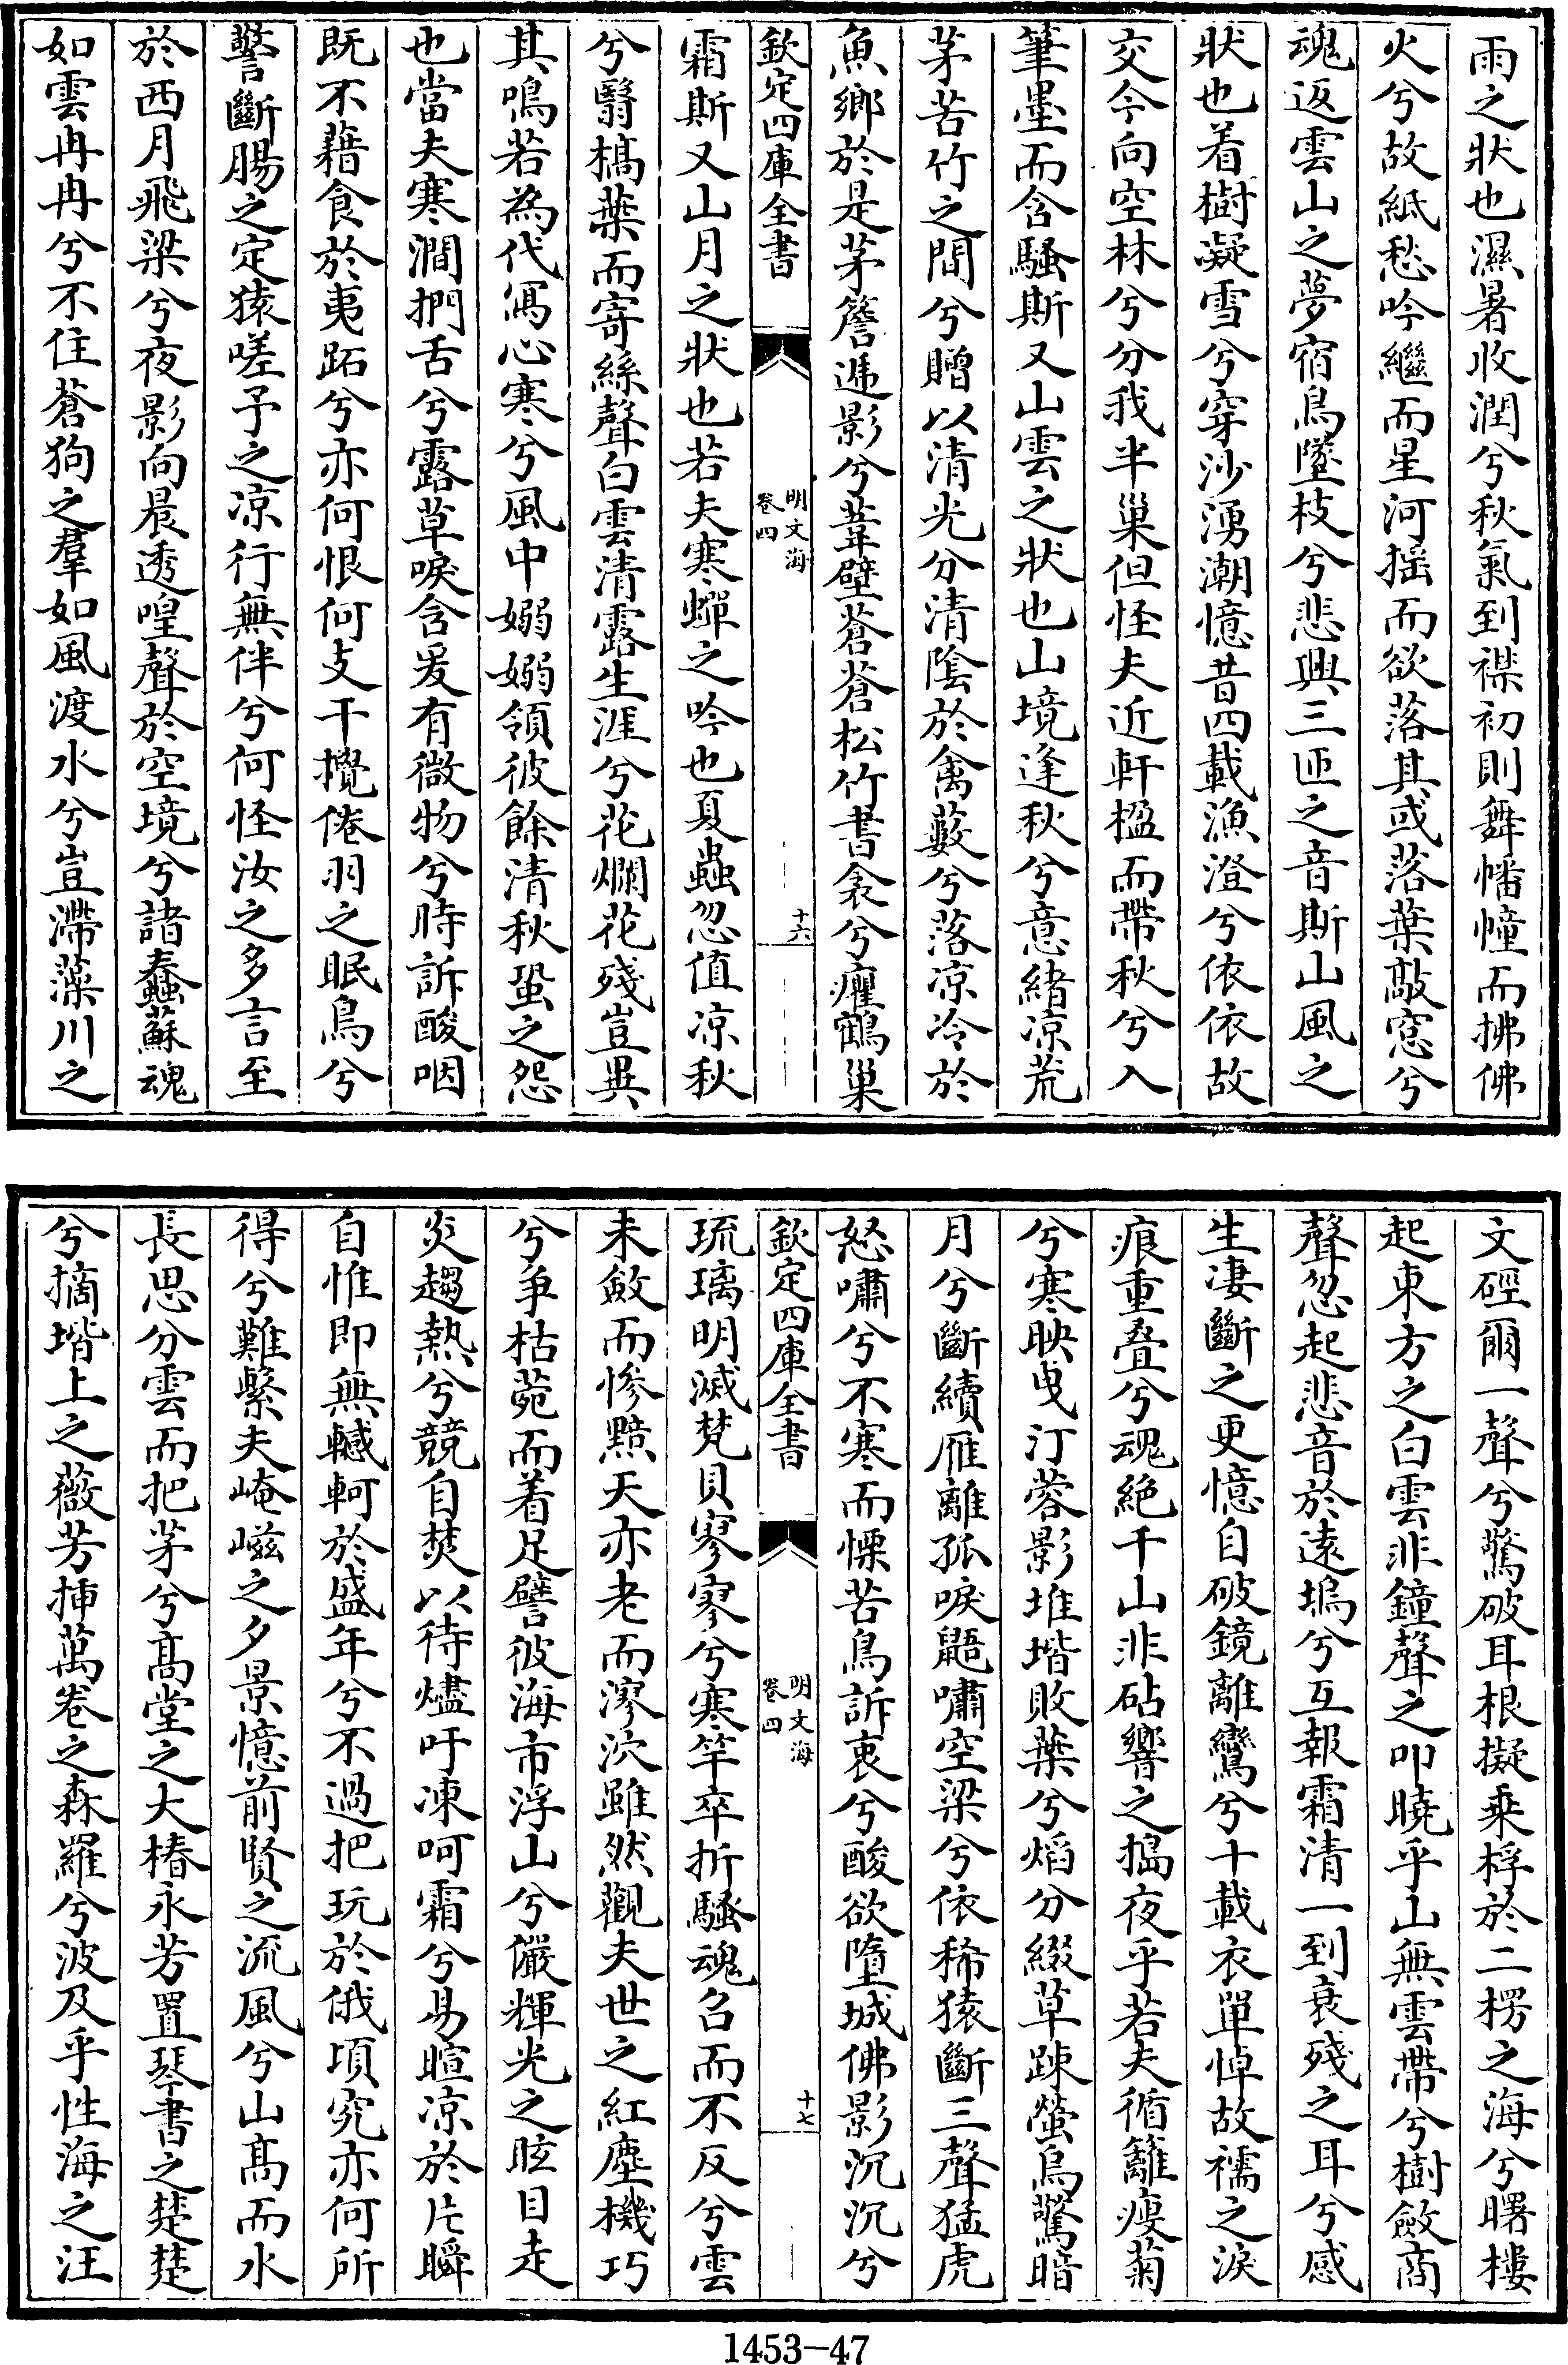 雨之狀也濕暑收潤兮秋氣到襟初則舞幡幢而拂佛
火兮故紙愁吟繼而星河揺而欲落其或落葉敲窓兮
魂返雲山之夢宿鳥墜枝兮悲興三匝之音斯山風之
狀也着樹凝雪兮穿沙湧潮憶昔四載漁澄兮依依故
交今向空林兮分我半巢但怪夫近軒楹而帶秋兮入
筆墨而含騷斯又山雲之狀也山境逢秋兮意緒凉荒
茅苦竹之間兮贈以清光分清陰於禽藪兮落凉冷於
魚鄉於是茅簷遞影兮葦壁蒼蒼松竹書衾兮癯鶴巢
欽定四庫全書
明文海
卷四
十六
霜斯又山月之狀也若夫寒蟬之吟也夏蟲忽值凉秋
兮翳槁葉而寄絲聲白雲清露生涯兮花爛花殘豈異
其鳴若為代寫心寒兮風中嫋嫋領彼餘清秋蛩之怨
也當夫寒澗捫舌兮露草唳含爰有微物兮時訴酸咽
既不藉食於夷跖兮亦何恨何支干攪倦羽之眠鳥兮
警斷腸之定猿嗟予之凉行無伴兮何怪汝之多言至
於西月飛梁兮夜影向晨透喤聲於空境兮諸蠢蘇魂
如雲冉冉兮不住蒼狗之羣如風渡水兮豈滯藻川之
文硜爾一聲兮驚破耳根擬乘桴於二楞之海兮曙樓
起東方之白雲非鐘聲之叩曉乎山無雲帶兮樹斂商
聲忽起悲音於遠塢兮互報霜清一到衰殘之耳兮感
生凄斷之更憶自破鏡離鸞兮十載衣單悼故襦之淚
痕重疊兮魂絶千山非砧響之搗夜乎若夫循籬瘦菊
兮寒映曳汀蓉影堆堦敗葉兮熖分綴草踈螢烏驚暗
月兮斷續雁離孤唳鼯嘯空梁兮依稀猿斷三聲猛虎
怒嘯兮不寒而慄苦鳥訴衷兮酸欲墮城佛影沉沉兮
欽定四庫全書
明文海
卷四
十七
琉璃明滅梵貝寥寥兮寒竿卒折騷魂召而不反兮雲
未斂而慘黯天亦老而漻泬雖然觀夫世之紅塵機巧
兮争枯菀而着足譬彼海市浮山兮儼輝光之眩目走
炎趨熱兮競自焚以待燼吁凍呵霜兮易暄凉於片瞬
自惟即無轗軻於盛年兮不過把玩於俄頃究亦何所
得兮難繫夫崦嵫之夕景憶前賢之流風兮山髙而水
長思分雲而把茅兮髙堂之大椿永芳置琴書之楚楚
兮摘堦上之薇芳揷萬卷之森羅兮波及乎性海之汪
1453—47